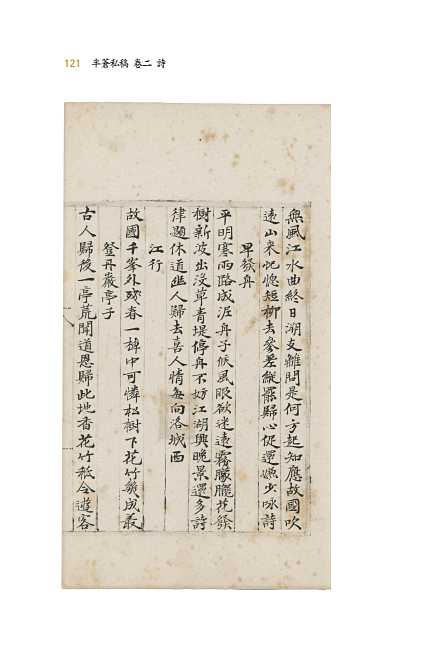 121 半蒼私稿 卷二 詩
無風江水曲終日溯支離問是何方起知應故國吹
遠山來恍惚短柳去參差縱罷歸心促還嫌少咏詩
早發舟
平明寒雨路成泥舟子候風眼欲迷遠霧朦朧花發
樹新波出沒草青堤停舟不妨江湖興晩景還多詩
律題休道幽人歸去喜人情每向洛城西
江行
故國千峯外殘春一棹中可憐松樹下花竹幾成叢
登丹巖亭子
古人歸後一亭荒聞道恩歸此地香花竹秪今遊客